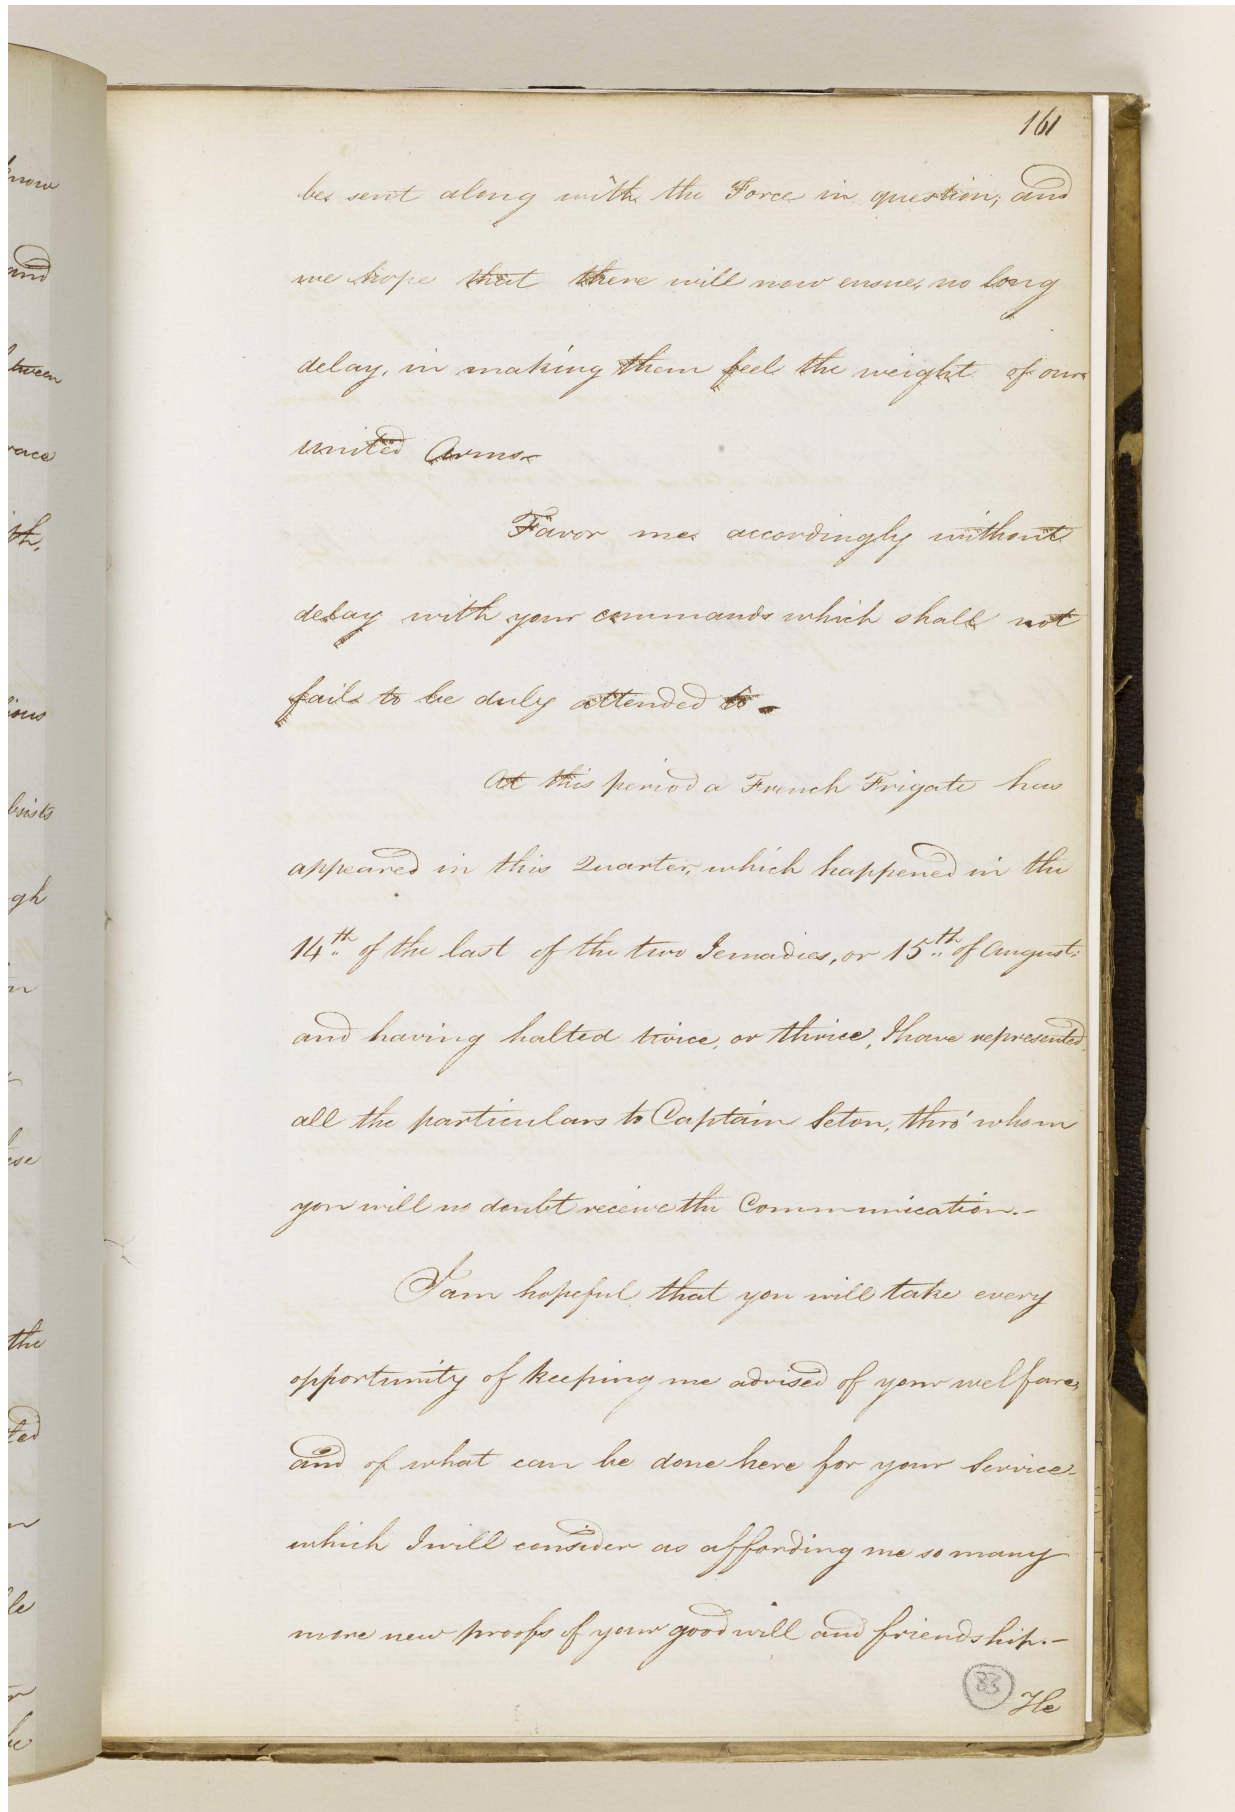 161
be sent along with the Force in question, and
we hope that there will now ensue, no long
delay, in making them feel the weight of our
united Arms.-
Favor me accordingly without
delay with your commands which shall not
fail to be duly attended to -
At this period a French Frigate has
appeared in this Quarter, which happened in the
14th of the last of the two Jemadies, or 15th of August;
and having halted twice, or thrice, I have represented
all the particulars to Captain Seton, thro' whom
you will no doubt receive the Communication.-
I am hopeful that you will take every
opportunity of keeping me advised of your welfare,
and of what can be done here for your Service
which I will consider as affording me so many
more new proofs of your good will and friendship.-
83
He
know
and
tween
th,
bsists
gh
the
ted